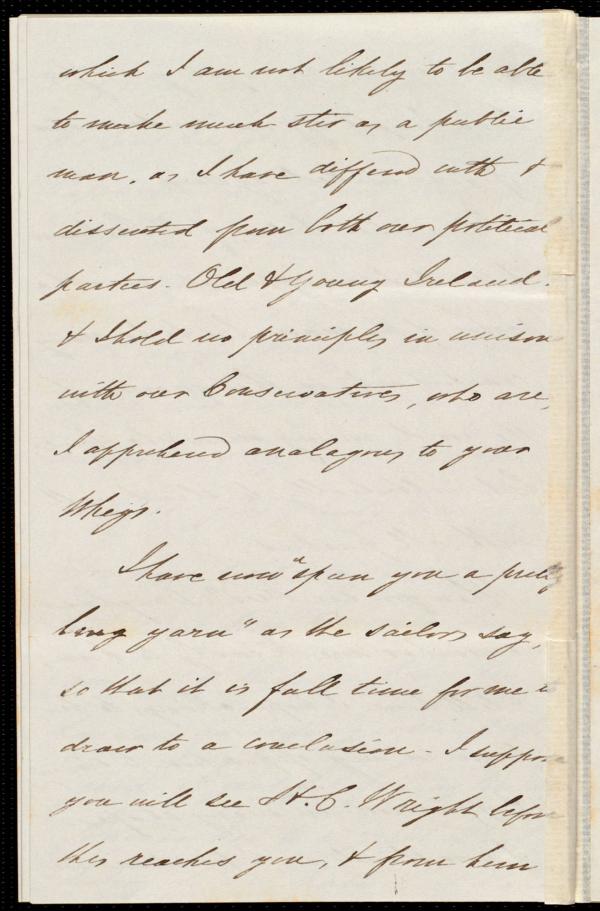 which I am not likely to be able
to make much stir as a public
man, as I have differed with &
dissented from both our political
parties - Old & Young Ireland.
& I hold no principles in unison
with our Conservatives, who are,
I apprehend analagous to your
Whigs.
I have now "spun you a pretty
long yarn" as the sailors say,
so that it is full time for me to
draw to a conclusion - I suppose
you will see H. C. Wright before
this reaches you, & from him